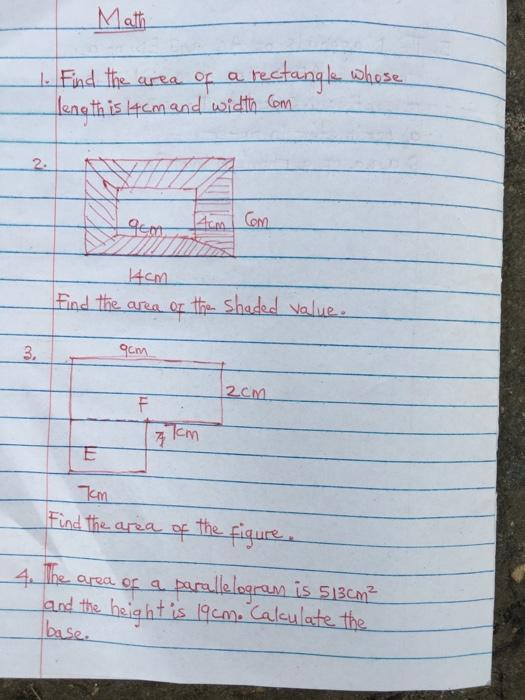 Math
1. Find the area of a rectangle whose
length is 14cm and width 6cm
2.
9cm 4cm 6cm
14cm
Find the area of the shaded value.
3. 9cm
2cm
F
7cm
E
7cm
Find the area of the figure.
4. The area of a parallelogram is 513cm²
and the height is 19cm. Calculate the
base.